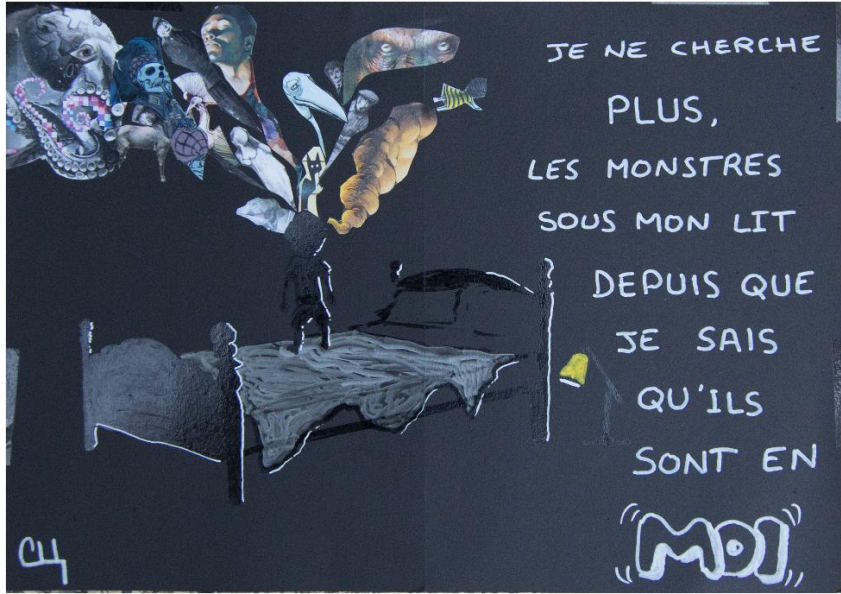 JE NE CHERCHE
PLUS,
LES MONSTRES
SOUS MON LIT
DEPUIS QUE
JE SAIS
QU'ILS
SONT EN
MOI